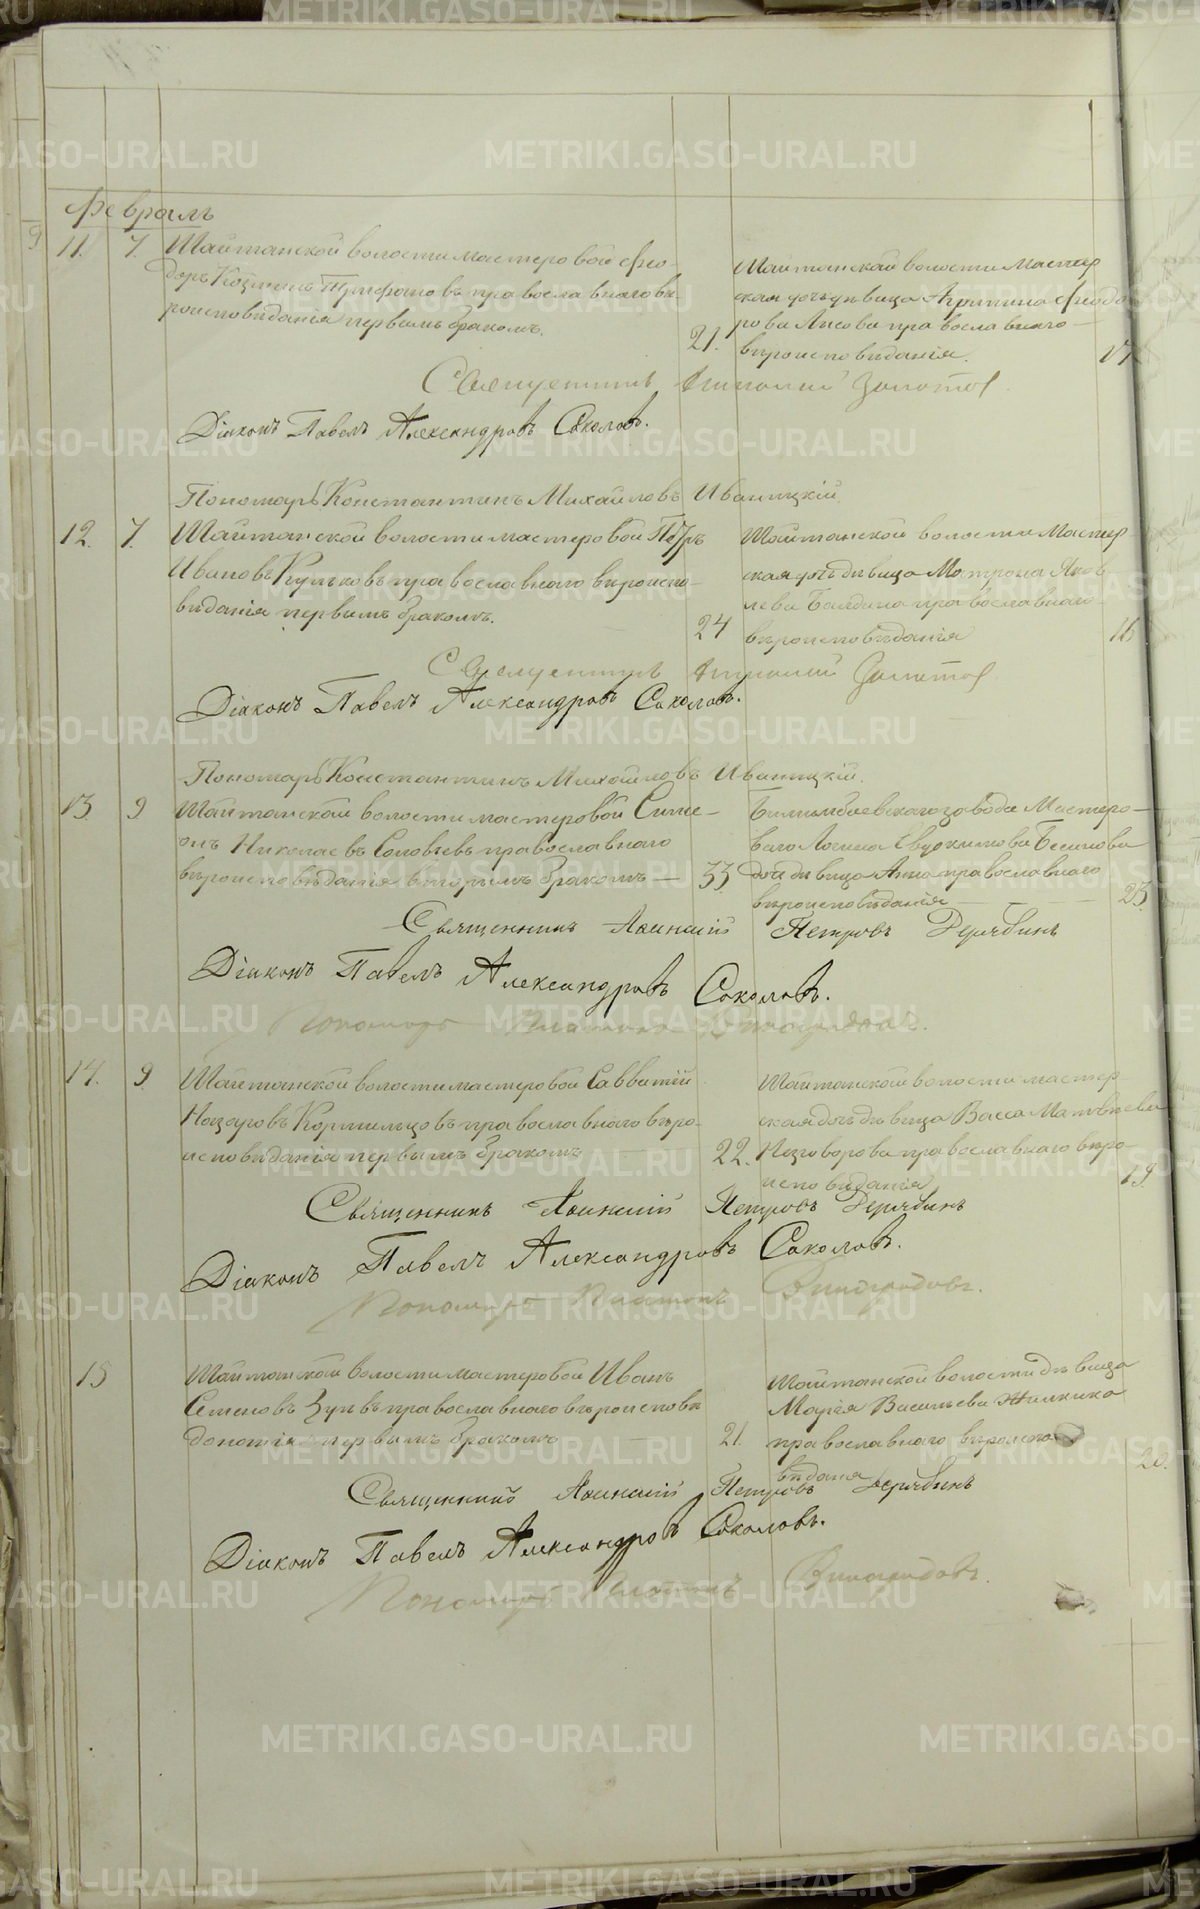 Февраль
11. 7. Шайтанской волости мастеровой Фео-
доръ Козминъ Трифоновъ православнаго вѣ-
роисповѣданія первымъ бракомъ. 21.
Шайтанской волости мастер
ская дочь дѣвица Агрипина Феодо
рова православнаго
вѣроисповѣданія. 17
Священникъ Золотов
Діаконъ Павелъ Александровъ Соколовъ.
Пономарь Константинъ Михайловъ Иваницкій
12. 7. Шайтанской волости мастеровой Петръ
Ивановъ Кульковъ православнаго вѣроиспо-
вѣданія первымъ бракомъ. 24
Шайтанской волости мастер
ская дочь дѣвица Матрона Яков
лева Балдина православнаго
вѣроисповѣданія
Священникъ Золотов
Діаконъ Павелъ Александровъ Соколовъ.
Пономарь Константинъ Михайловъ Иваницкій.
13. 9 Шайтанской волости мастеровой Симе-
онъ Николаевъ Соловьевъ православнаго
вѣроисповѣданія вторымъ бракомъ — 33
Билимбаевскаго завода мастеро-
ваго Логина Евдокимова
дочь дѣвица Анна православнаго
вѣроисповѣданія 23.
Священникъ Петровъ Дерябинъ
Діаконъ Павелъ Александровъ Соколовъ.
Пономарь Платонъ Виноградовъ.
14. 9. Шайтанской волости мастеровой Савватій
Назаровъ Кормильцовъ православнаго вѣро-
исповѣданія первымъ бракомъ 22.
Шайтанской волости мастер
ская дочь дѣвица Васса Матвѣева
Незговорова православнаго вѣро-
исповѣданія 19.
Священникъ Петровъ Дерябинъ
Діаконъ Павелъ Александровъ Соколовъ.
Пономарь Платонъ Виноградовъ.
15 Шайтанской волости мастеровой Иванъ
Семеновъ Зуевъ православнаго вѣроисповѣ
даноія первымъ бракомъ 21.
Шайтанской волости дѣвица
Марія Васильева Жилкина
православнаго вѣроиспо
вѣдания 20.
Священникъ Петровъ Дерябинъ
Діаконъ Павелъ Александровъ Соколовъ.
Пономарь Платонъ Виноградовъ.
METRIKI.GASO-URAL.RU